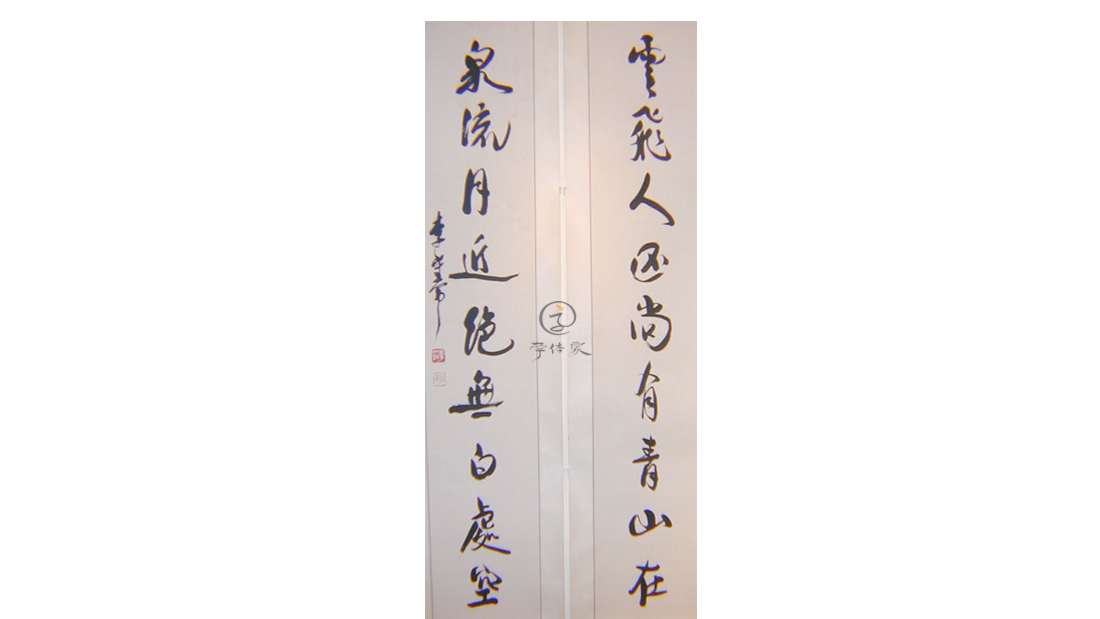 雲飛人还尚有青山在
泉流月近絶無白處空
字体家